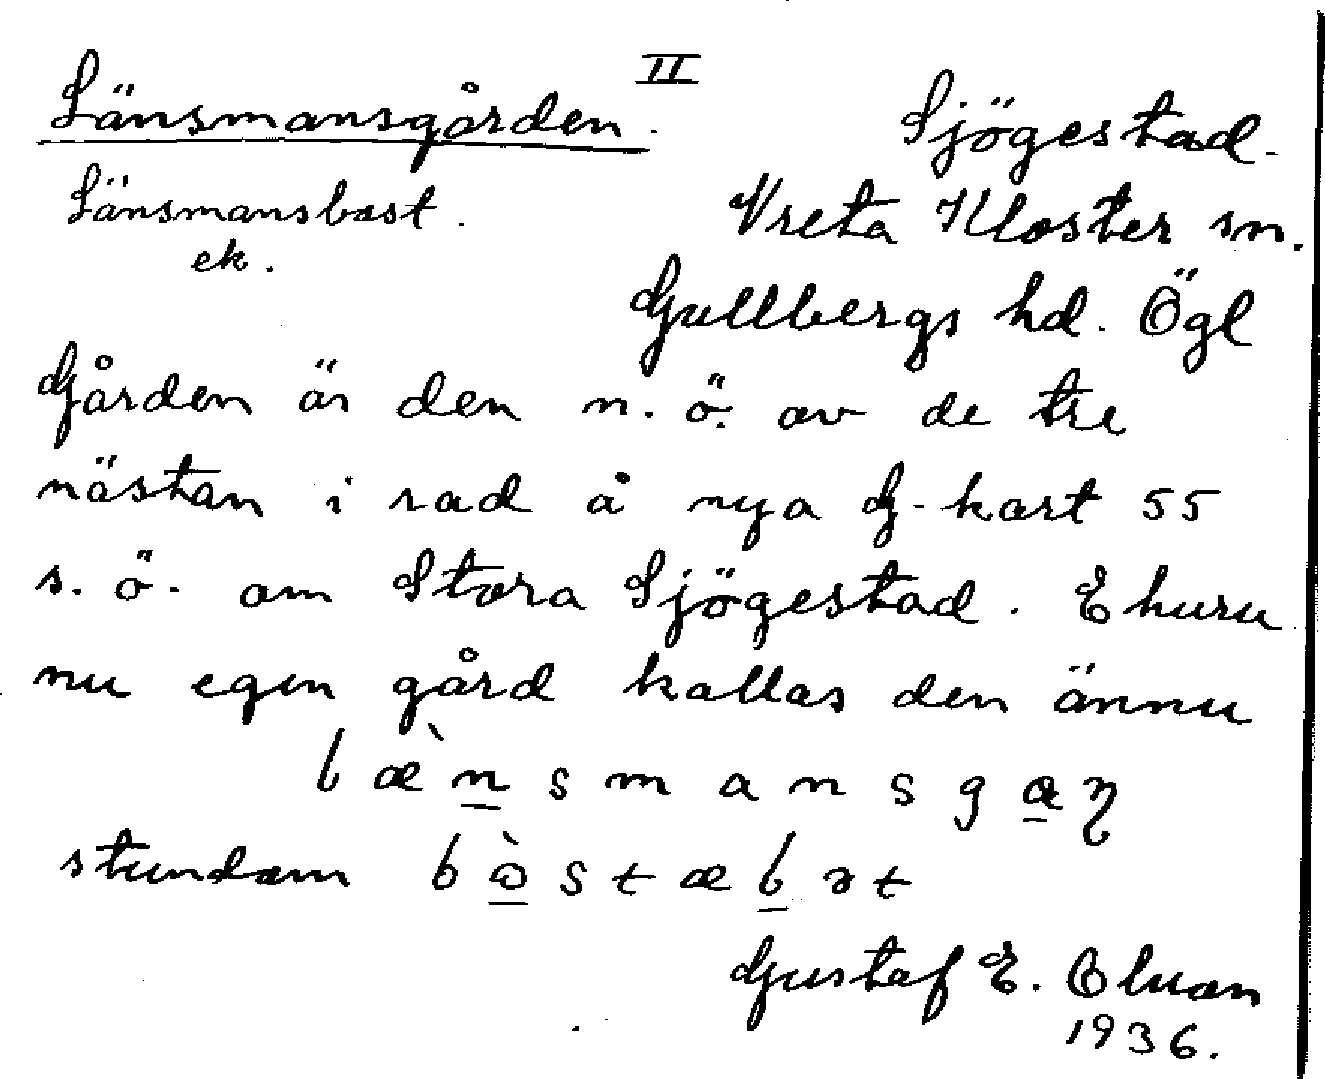 II
Länsmansgården.
Sjögestad.
Länsmansbost.
ek.
Vreta Kloster sn.
Gullbergs hd. Ögl
Gården är den n. ö. av de tre
nästan i rad å nya G-kart 55
s. ö. om Stora Sjögestad. Ehuru
nu egen gård kallas den ännu
stundom
Gustaf E.
1936.